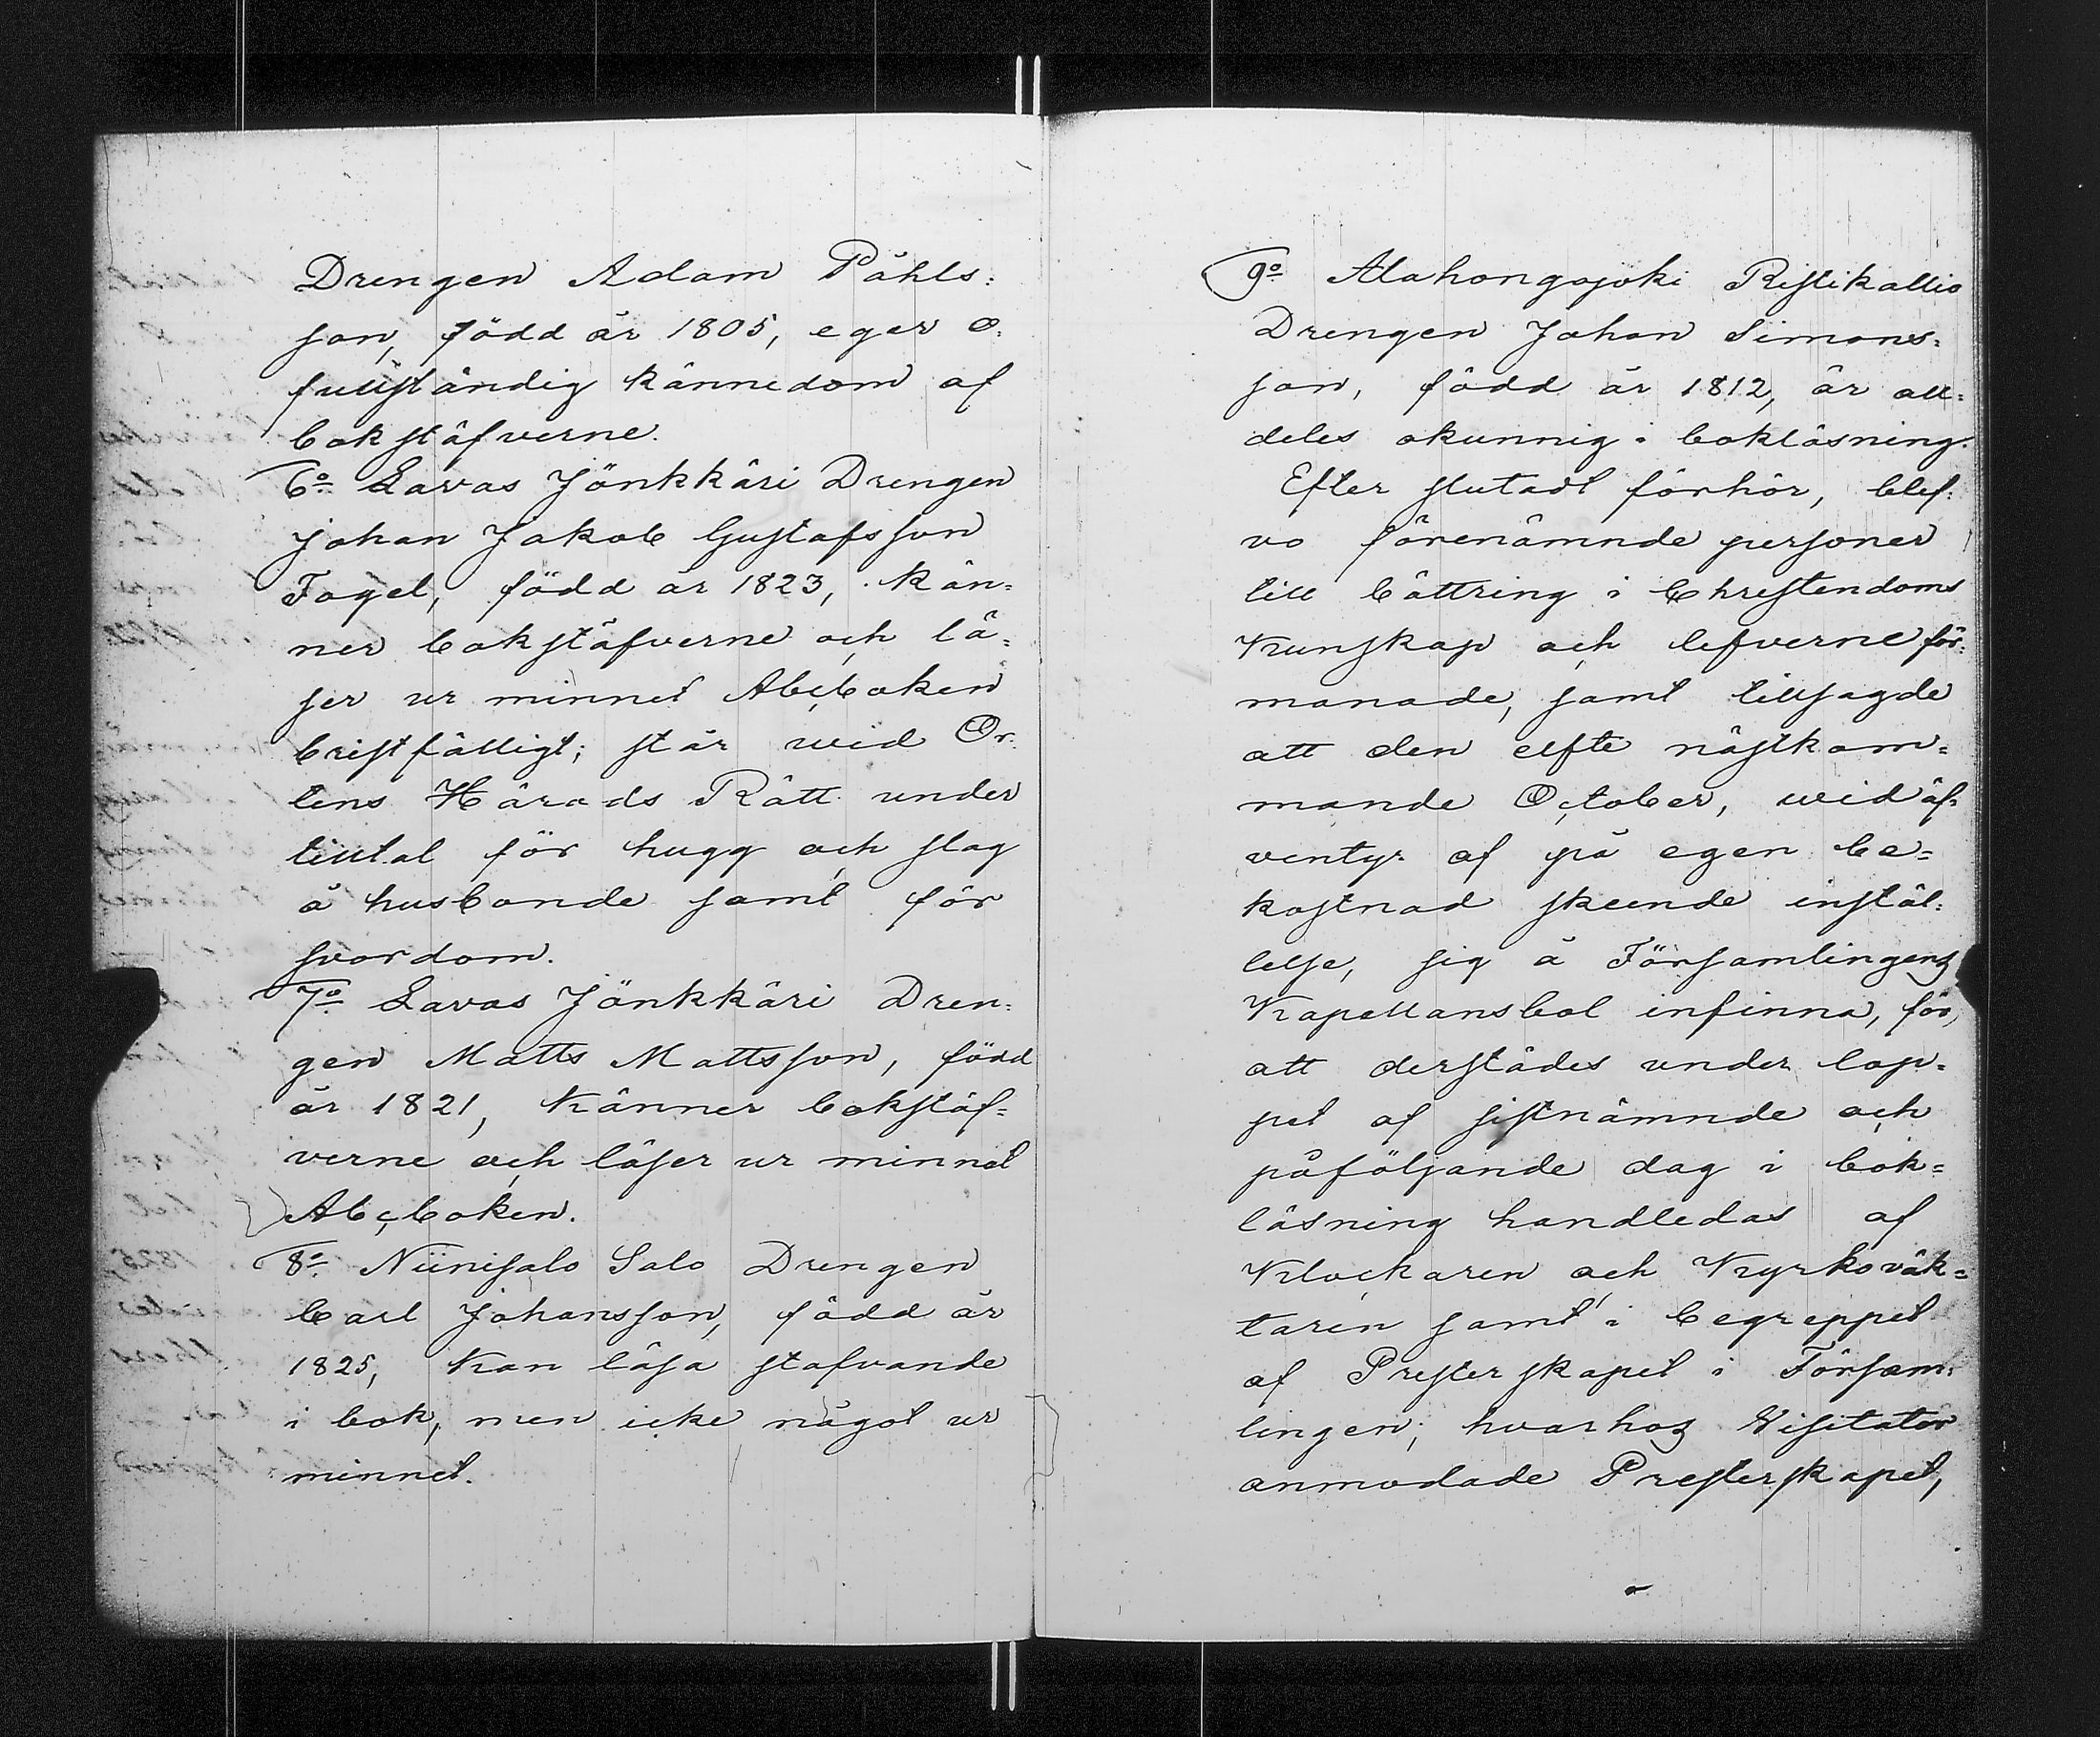 Drengen Adam Påhls:
son, född år 1805, eger o:
fullständig kännedom af
bokstäfverne.
6o Lavas Jönkkäri Drengen
Johan Jakob Gustafsson
Fogel, född år 1823, kän:
ner bokstäfverne och lä:
ser ur minnet Abcboken
bristfälligt; står wid Or:
tens Härads Rätt under
tilltal för hugg och slag
å husbonde samt för
svordom.
7o Lavas Jönkkäri Dren:
gen Matts Mattsson, född
år 1821, känner bokstäf=
verne och läser ur minnet
Abcboken.
8o Niinisalo Salo Drengen
Carl Johansson, född år
1825, kan läsa stafvande
i bok, men icke något ur
minnet.
9o Alahongojoki Ristikallio
Drengen Johan Simons:
son, född år 1812, är all:
deles okunnig i bokläsning.
Efter slutadt förhör, blef:
vo förenämnde personer
till bättring i Christendoms
Kunskap och lefverne för:
manade, samt tillsagde
att den elfte nästkom=
mande October, wid äf:
ventyr af på egen be=
kostnad skeende instäl:
lelse, sig å Församlingens
Kapellansbol infinna, för,
att derstädes under lop=
pet af sistnämnde och
påföljande dag i bok=
läsning handledas af
Klockaren och Kyrkoväk=
taren samt i begreppet
af Presterskapet i Försam:
lingen; hvarhos Visitator
anmodade Presterskapet,